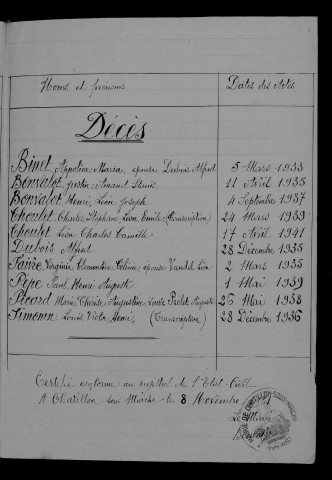 Noms et prénoms Dates des Actes
Décès
Binet, Appoline Maria, épouse Dubois Alfred 5 Mars 1933
Bonvalot, Justin Amand Denis 11 Avril 1935
Bonvalot, Henri, Léon Joseph 4 Septembre 1937
Choulet Charles Stéphane Léon Emile (Transcription) 24 Mars 1939
Choulet Léon Charles Camille 17 Avril 1941
Dubois Alfred 28 Décembre 1935
Faivre, Virginie Clémentine Céline épouse Vandel Léon 2 Mars 1935
Pépe Paul, Henri Auguste 1 Mai 1939
Pécard Marie Thérèse Augustine Veuve Auguste 26 Mai 1938
Simonin Louis Victor Henri, (Transcription) 28 Décembre 1936
Certifié conforme au registre de l'Etat-Civil
A Chatillon sous Maiche le 8 Novembre
Le Maire